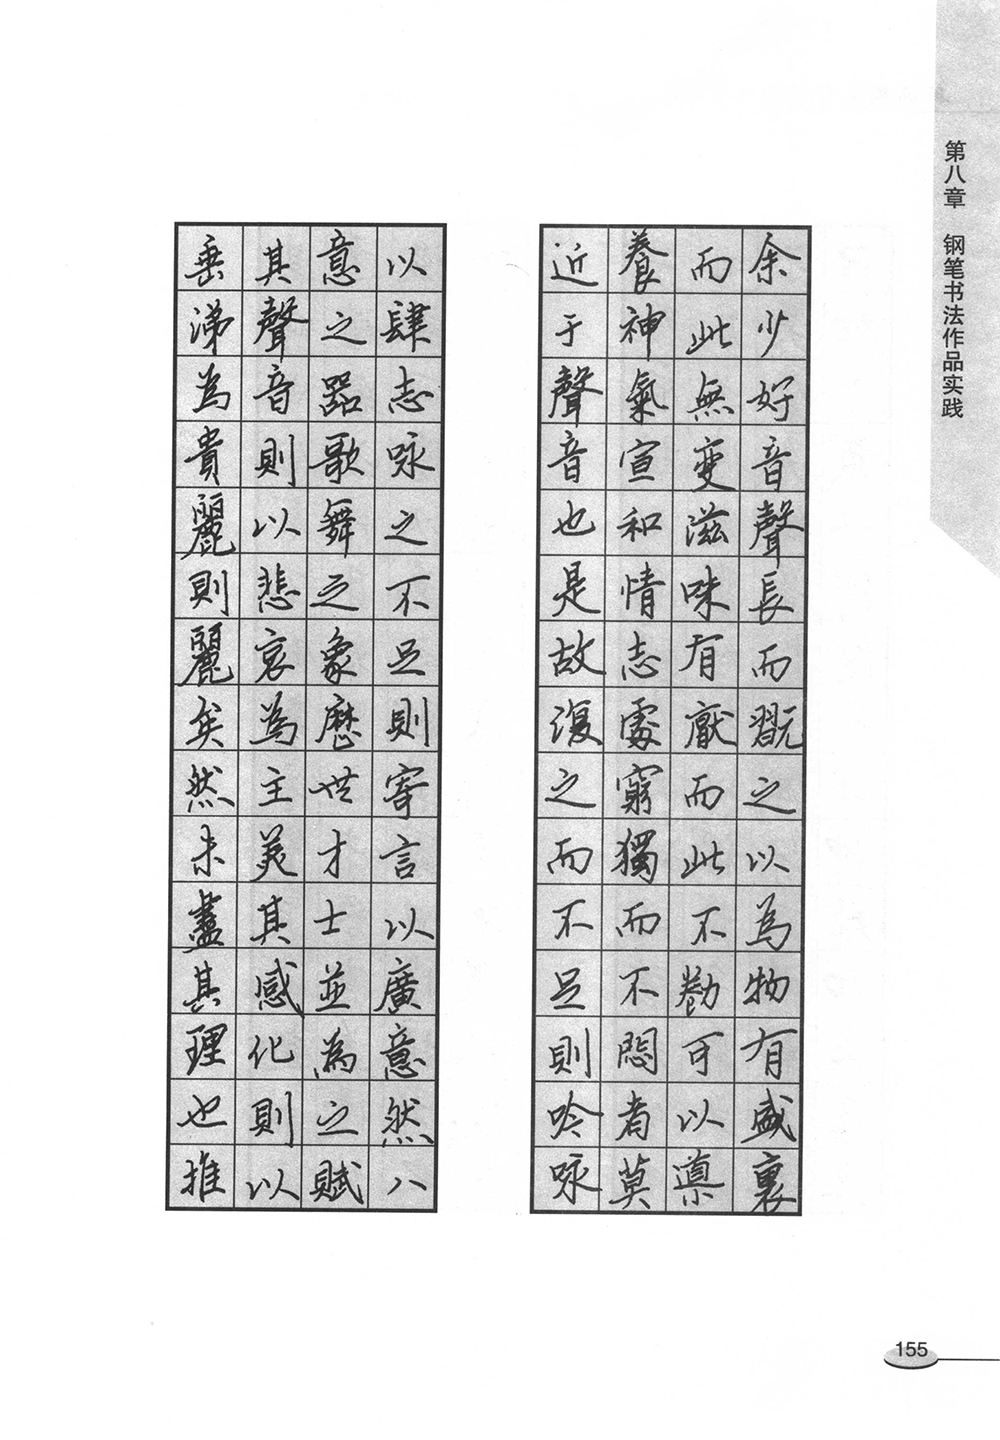 第八章 钢笔书法作品实践
余少好音聲長而翫之以為物有盛衰
而此無变滋味有厭而此不勌可以導
養神氣宣和情志處窮獨而不悶者莫
近于聲音也是故復之而不足則吟咏
以肆志咏之不足則寄言以廣意然八
意之器歌舞之象歷世才士並為之賦
其聲音則以悲哀為主美其感化則以
垂涕為貴麗則麗矣然未盡其理也推
155